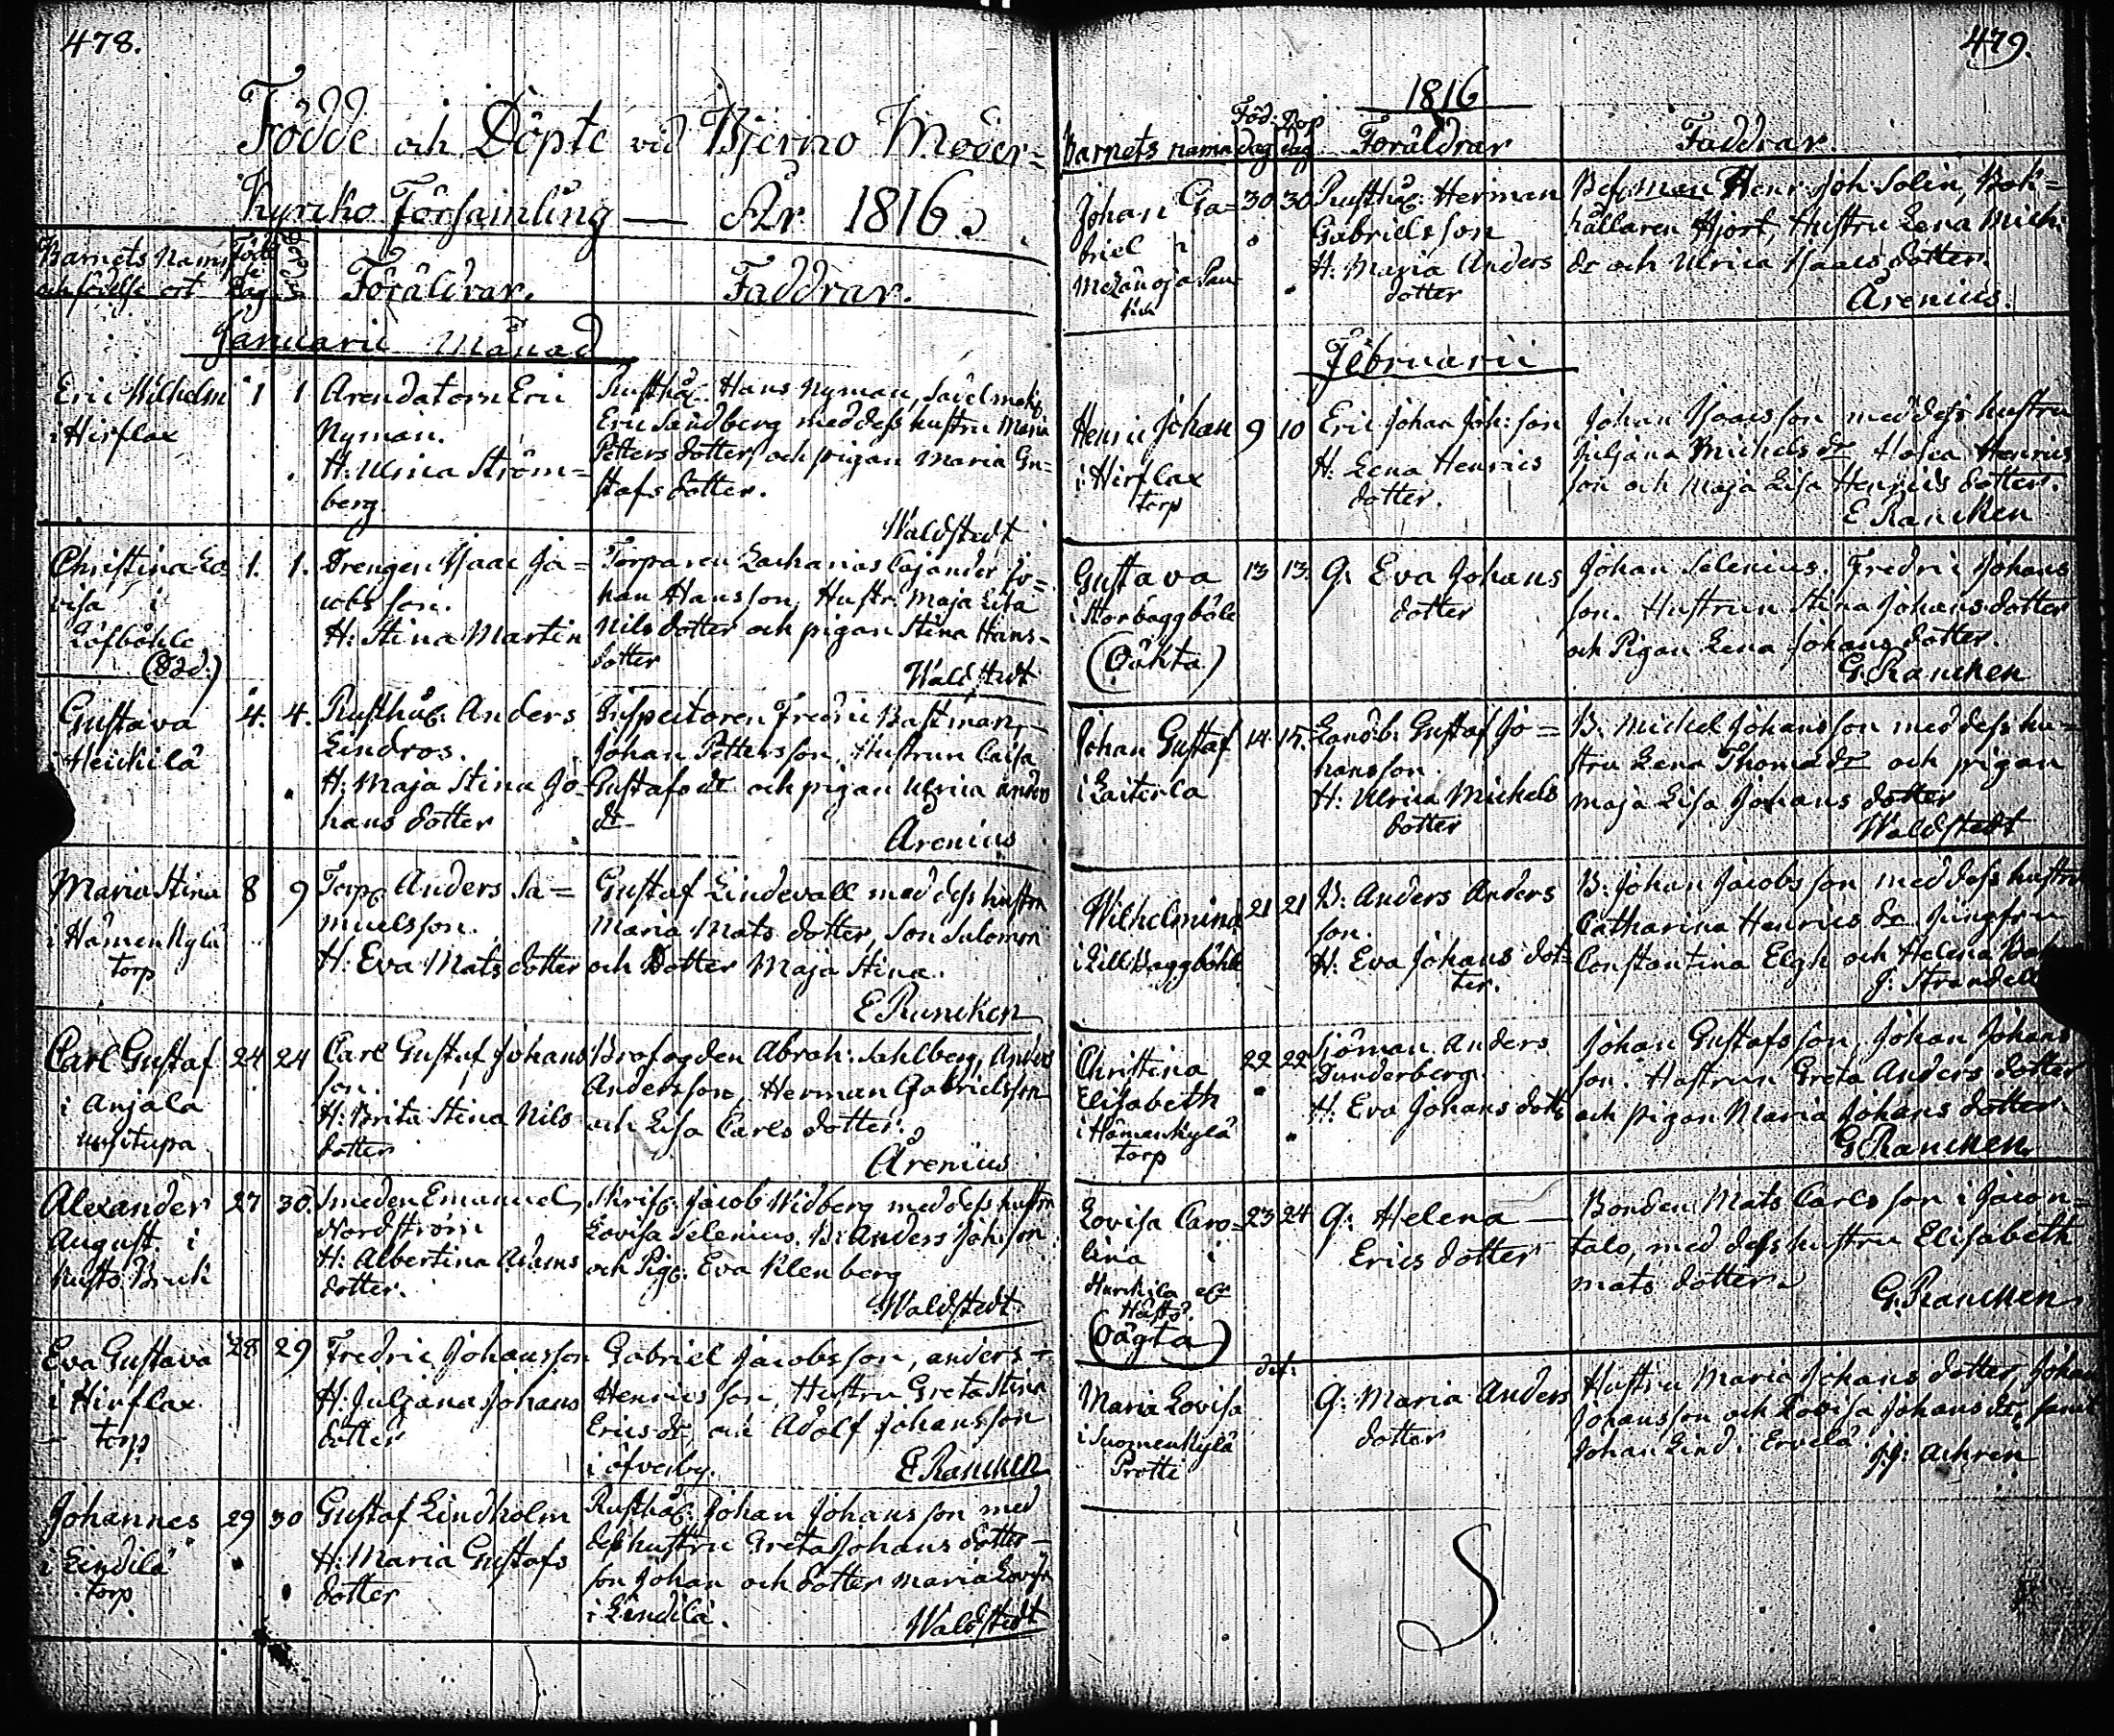 478.
Födde och Döpte vid Bjerno Moder=
Kyrko Församling — År 1816.
Barnets Namn
och födelse ort
Födel
se
dag
Föräldrar.
Faddrar.
Januarii Månad
Eric Wilhelm
i Hirflax
1
1
Arendatorn Eric
Nyman.
H: Ulrica Ström=
berg.
Rusthål. Hans Nyman,
Eric Sandberg med dess hustru Maria
Petters dotter, och pigan Maria Gu=
stafs dotter.
Waldstedt
Christina Lo
visa i
Löfböhle
(död.)
1.
1.
Drengen Isaac Ja=
cobs son.
H: Stina Martin
Torparen Zacharias Cajander Jo=
han Hansson, Hustr. Maja Lisa
Nils dotter och pigan Stina Hans-
dotter
Waldstedt
Gustava
i Heickilä
4.
4.
Rusthål. Anders
Lindros.
H: Maja Stina Jo=
hans dotter
Inspectoren Fredric Bastman,
Johan Pettersson, Hustrun Caisa
Gustafs dr och pigan Ulrica Anders
dr
Årenius
Maria Stina
i Hämenkylä
torp
8
9
Torp. Anders Sa=
muelsson.
H: Eva Mats dotter
Gustaf Lindevall med dess hustru
Maria Mats dotter, Son Salomon
och Dotter Maja Stina.
E Rancken
Carl Gustaf
i Anjala
24
24
Carl Gustaf Johans
son.
H: Brita Stina Nils
dotter
Brofogden Abrah: Sahlberg, Anders
Andersson, Herman Gabrielsson
och Lisa Carls dotter.
Årenius
Alexander
August i
Bruk
27
30.
Smeden Emanuel
Nordström
H: Albertina Adams
dotter.
Jacob Widberg med dess hustru
Lovisa Selenius. B: Anders Joh:son
och Pig. Eva Klenberg
Waldstedt
Eva Gustava
i Hirflax
torp
28
29
Fredric Johansson
H: Juljana Johans
dotter
Gabriel Jacobsson, anders
Henrics son, Hustru Greta Stina
Erics dr och Adolf Johansson
i öfverby.
E Rancken
Johannes
i Lindilä
torp
29
30
Gustaf Lindholm
H: Maria Gustafs
dotter
Rusthål. Johan Johansson med
dess hustru Greta Johans dotter
son Johan och dotter Maria Lovisa
i Lindilä.
Waldstedt
479.
1816
Barnets namn
Föd:
dag
Döp
dag
Föräldrar
Faddrar
Johan Ga=
briel i
30
30
Rusthål: Herman
Gabrielsson
H: Maria Anders
dotter
Bef.man Henr: Joh: Solin, Bok=
hållaren Hjort, Hustru Lena Mich:
dr och Ulrica Isaacs dotter.
Årenius.
Februarii
Henric Johan
i Hirflax
torp
9
10
Eric Johan Joh:son
H: Lena Henrics
dotter.
Johan Isaacsson med dess hustru
Juljana Michels dr Henrics
son och Maja Lisa Henrics dotter.
E Rancken
Gustava
i Storbaggböle
(Oäkta)
13
13.
Q: Eva Johans
dotter
Johan Selenius. Fredric Johans
son. Hustrun Stina Johans dotter
och Pigan Lena Johans dotter.
G. Rancken
Johan Gustaf
i Laiterla
14
15.
Landb: Gustaf Jo=
hansson.
H: Ulrica Michels
dotter
B. Michel Johansson med dess hu=
stru Lena Thomæ dr och pigan
Maja Lisa Johans dotter
Waldstedt
Wilhelmina
i Lill Baggböhle
21
21
B: Anders Anders
son.
H: Eva Johans dot=
ter.
B: Johan Jacobsson med dess hustru
Catharina Henrics dr Jungfru
Constantina Elgh och Helena
J: Strandell
Christina
Elisabeth
i Hämenkylä
torp
22
22
Sjöman Anders
Dunderberg.
H: Eva Johans dott:
Johan Gustafsson, Johan Johans
son. Hustrun Greta Anders dotter
och pigan Maria Johans dotter.
G. Rancken
Lovisa Caro=
lina i
(oägta)
23
24
Q: Helena —
Erics dotter
Bonden Mats Carlsson i Jacon=
talo, med dess hustru Elisabeth
Mats dotter.
G. Rancken
Maria Lovisa
i Suomenkylä
Protti
Q: Maria Anders
dotter
Hustru Maria Johans dotter, Johan
Johansson och Lovisa Johans dr, samt
Johan Lind i Ervelä.
J.J: Achren